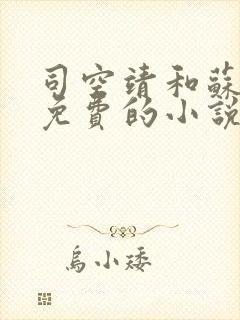 司空靖和蘇
免費的小說
烏小矮